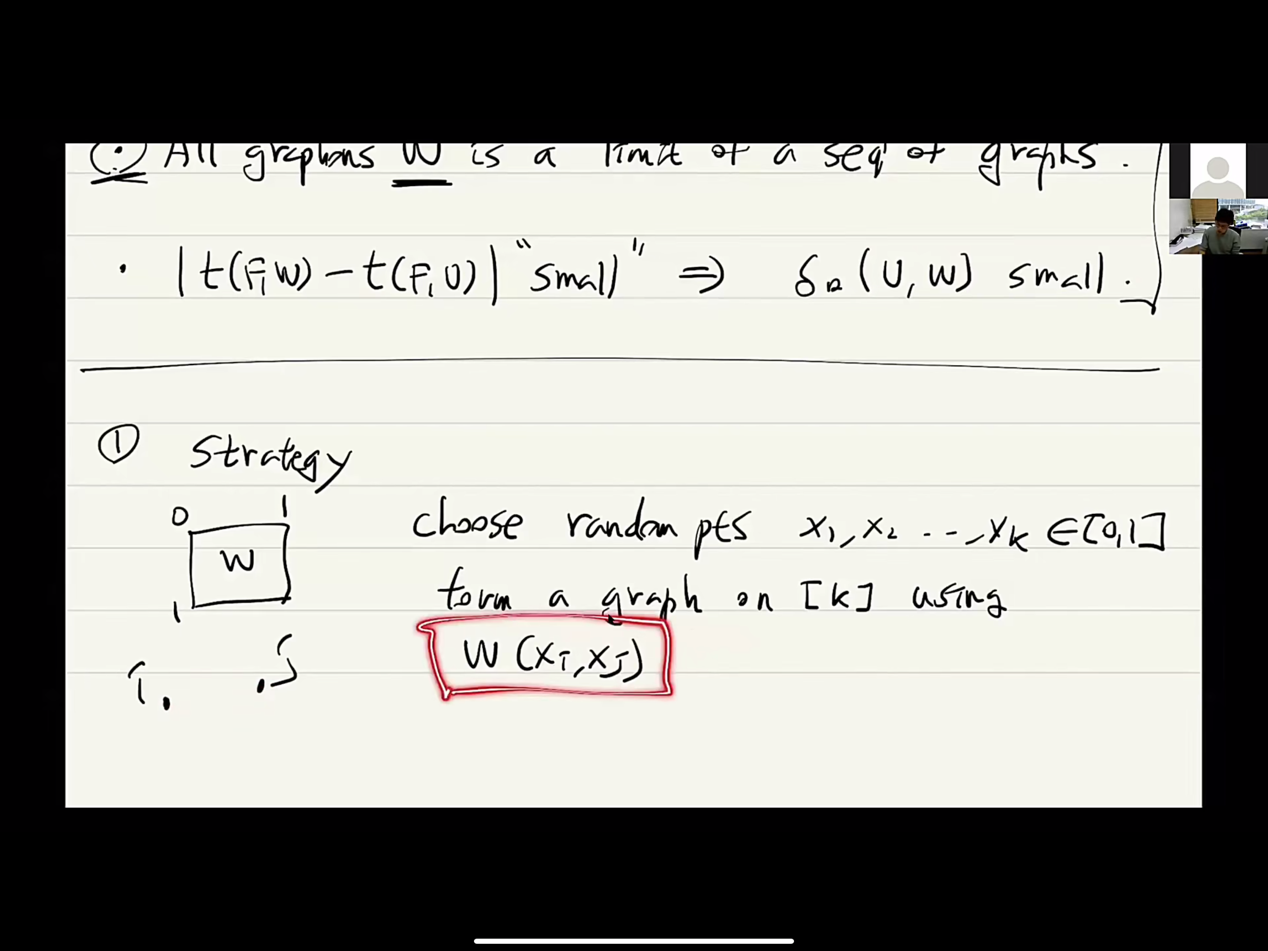 All graphons W is a limit of a seq of graphs.
· |t(F,W) − t(F,U)| "small" ⇒ δ□(U,W) small.
① Strategy
0 1
choose random pts x₁, x₂ ..., xₖ ∈ [0,1]
W
form a graph on [k] using
1
W(xᵢ,xⱼ)
i. .j